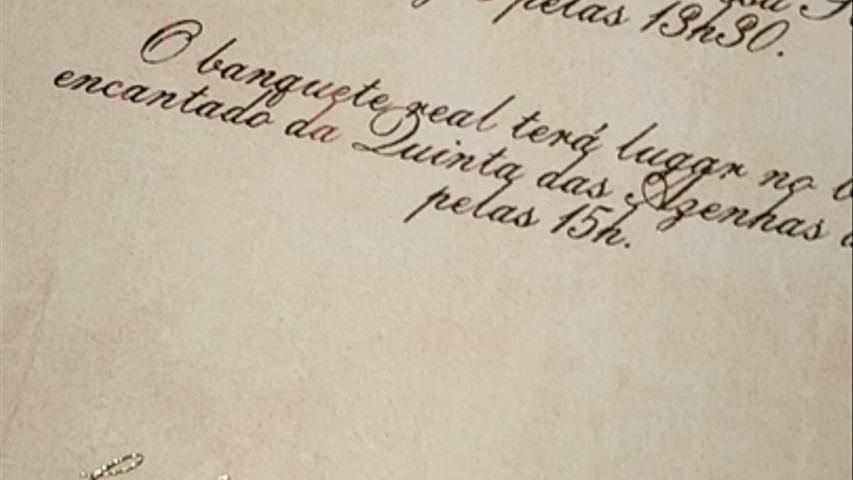 pelas 13h30.
O banquete real terá lugar no
encantado da Quinta das Azenhas
pelas 15h.